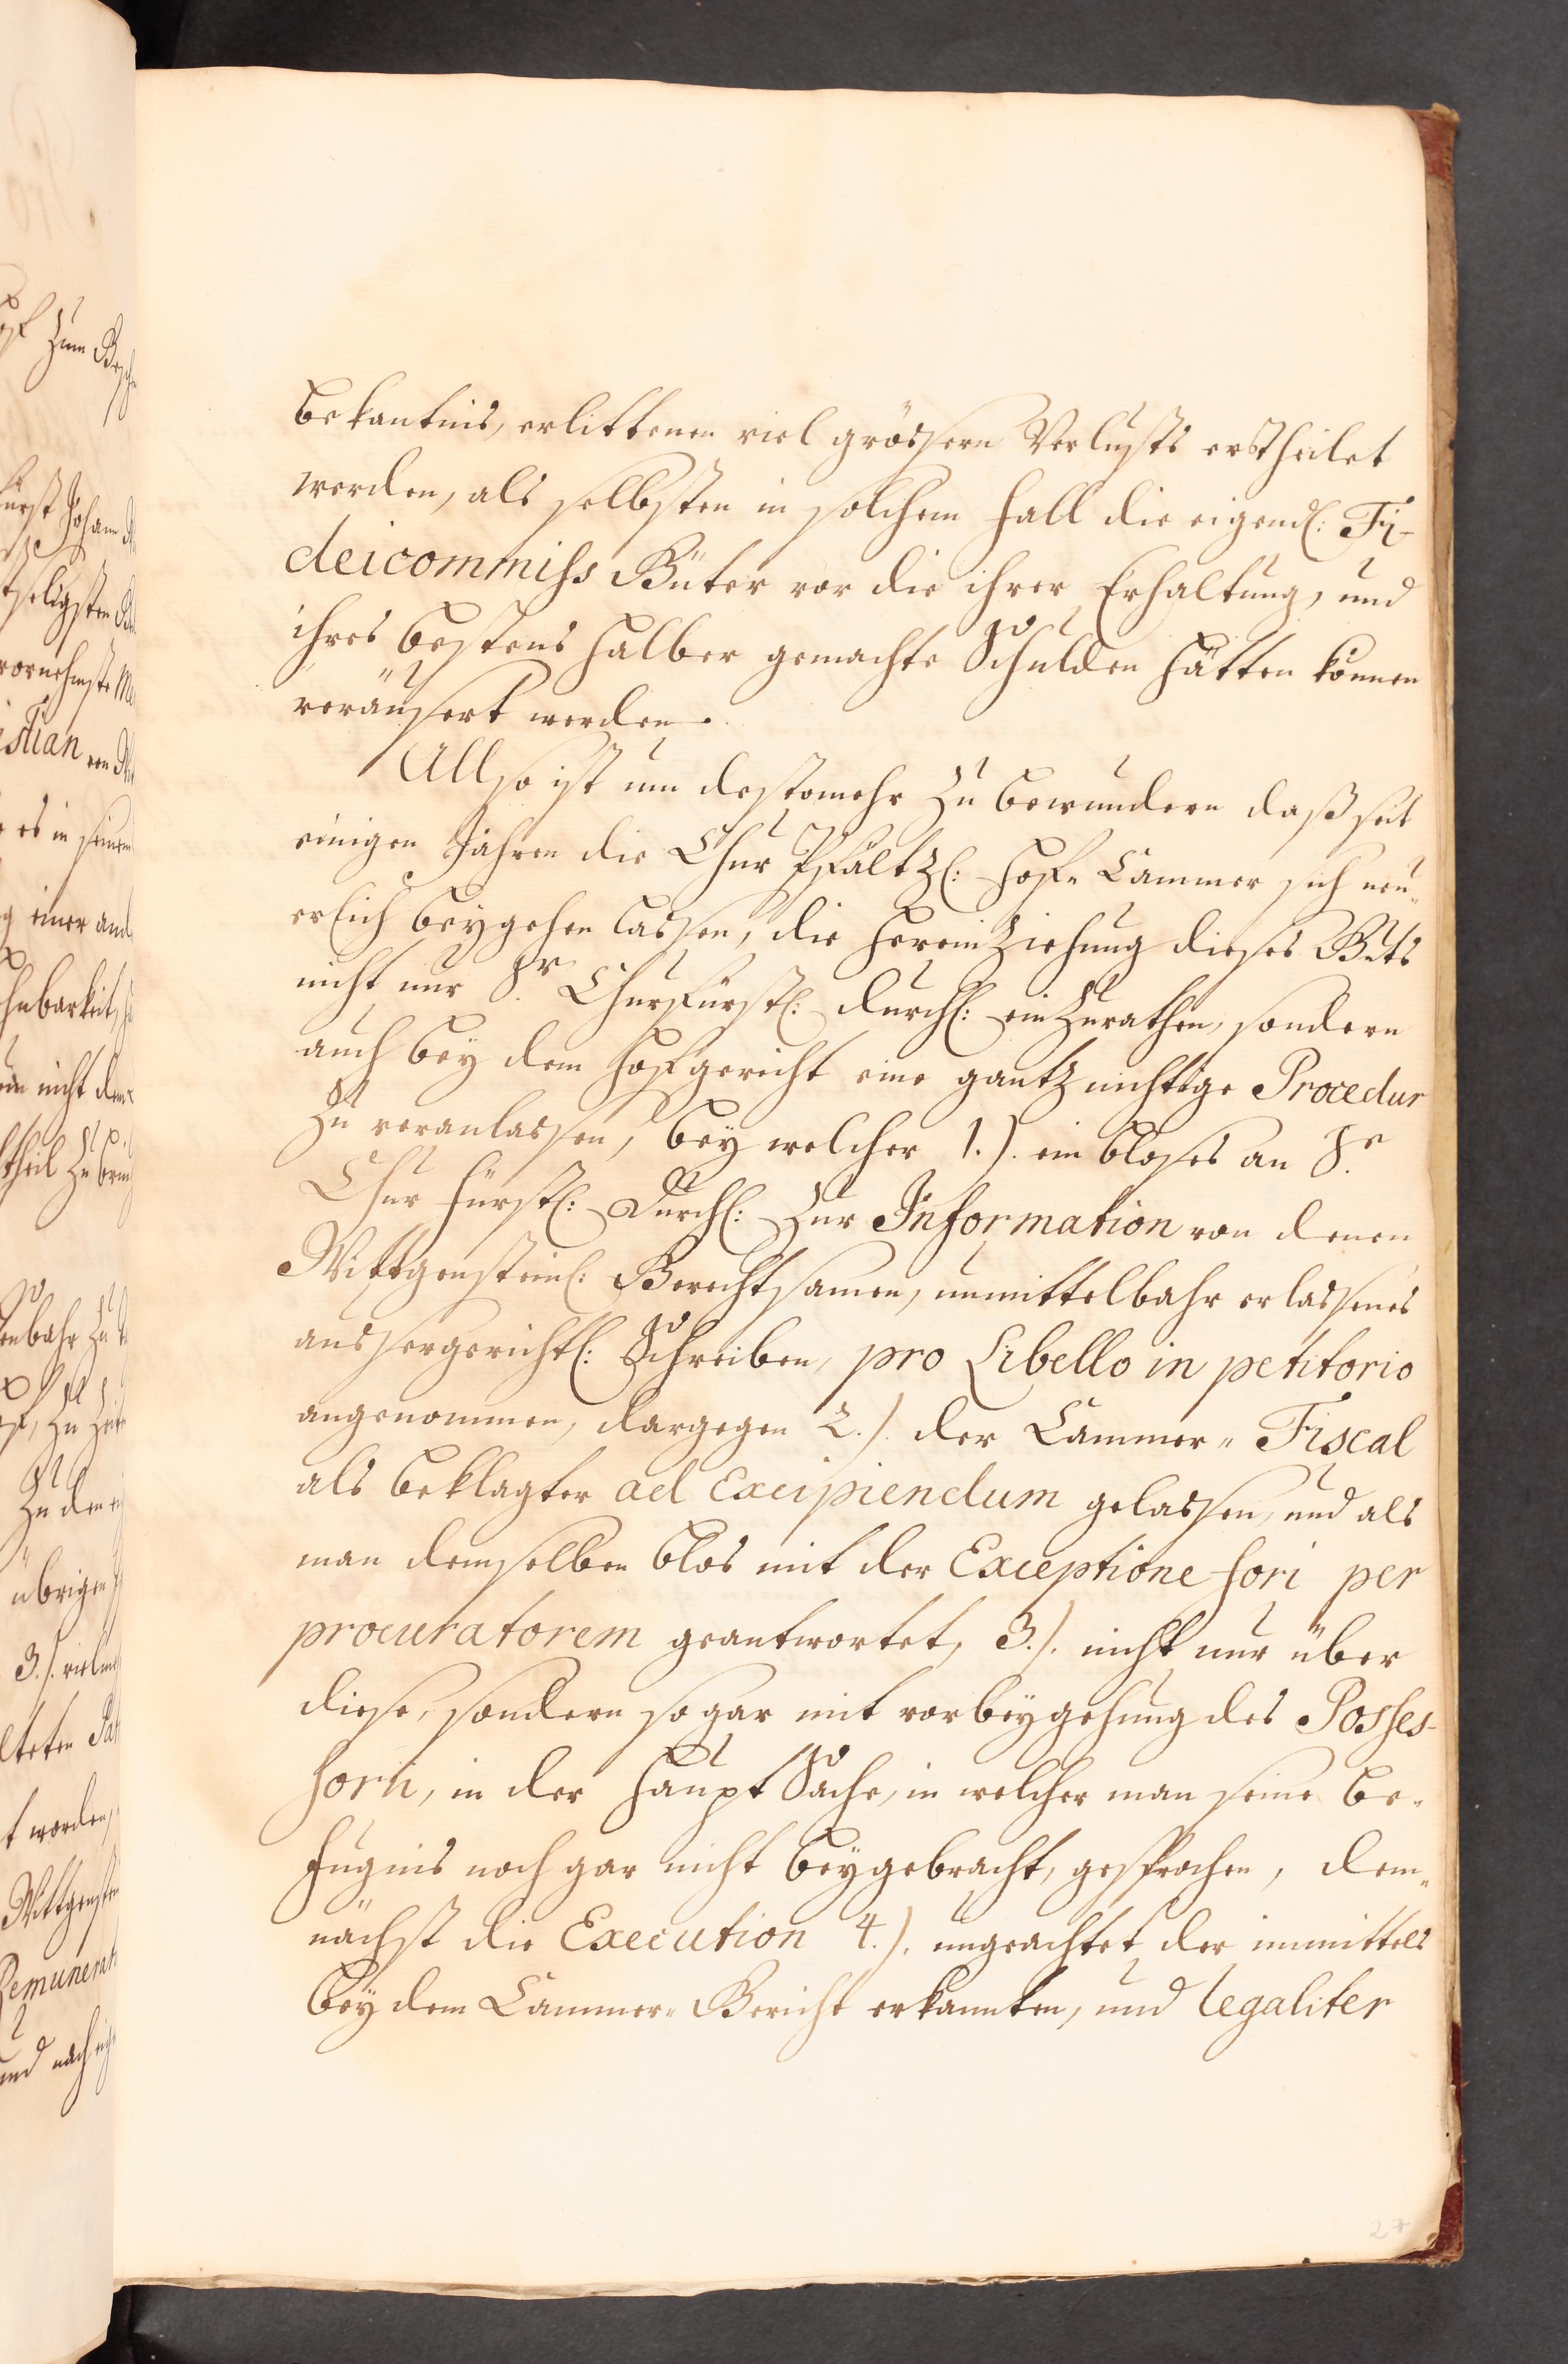 bekantnis, erlittenen viel grössern Verlusts ertheilet
werden, als selbsten in solchem fall die eigendl: Fi-
deicommiss Güter vor die ihrer Erhaltung, und
ihres bestens halber gemachte Schulden hätten können
veräusert werden.
Allso ist um destomehr zu bewundern daß seit
einigen Jahren die Chur Pfältzl: Hof- Cammer sich neu-
erlich beygehen lassen, die hereinziehung dieses Guts
nicht nur Sr. Churfürstl: durchl: einzurathen, sondern
auch bey dem hofgericht eine gantz nichtige Procedur
zu veranlassen, bey welcher 1.). ein bloses an Sr.
Chur fürstl: Durchl: zur Information von denen
Wittgensteinl: Gerechtsamen, unmittelbahr erlassenes
aussergerichtl: Schreiben, pro Libello in petitorio
angenommen, dargegen 2.). der Cammer- Fiscal
als beklagter ad Excipiendum gelassen, und als
man demselben blos mit der Exceptione fori per
procuratorem geantwortet, 3.). nicht nur über
diese, sondern sogar mit vorbeygehung des Posses-
sorii, in der haupt Sache, in welcher man seine be-
fugnis noch gar nicht beygebracht, gesprochen, dem-
nächst die Execution 4.). ungeachtet der inmittels
bey dem Cammer- Gericht erkannten, und legaliter
27